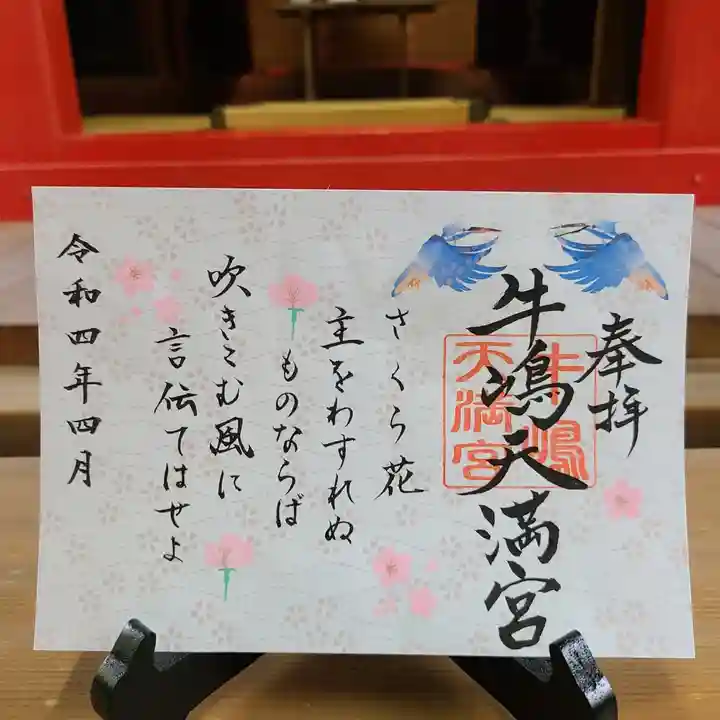 奉拝
牛嶋天満宮
牛嶋
天満宮
さくら花
主をわすれぬ
ものならば
吹きこむ風に
言伝てはせよ
令和四年四月